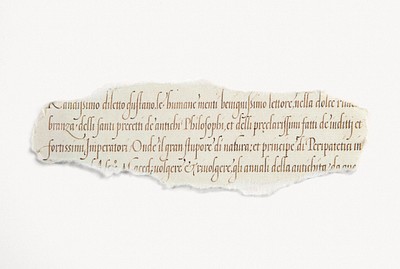 Grandissimo diletto gustano, le humane menti benignissimo lettore, nella dolce rime
branza, delli santi precetti de antichi Philosophi, et delli preclarissimi fatti de inditti et
fortissimi Imperatori, Onde il gran stupore di natura, et principe, di Peripatetici in
volgere & rivolgere, gli annali della antichita